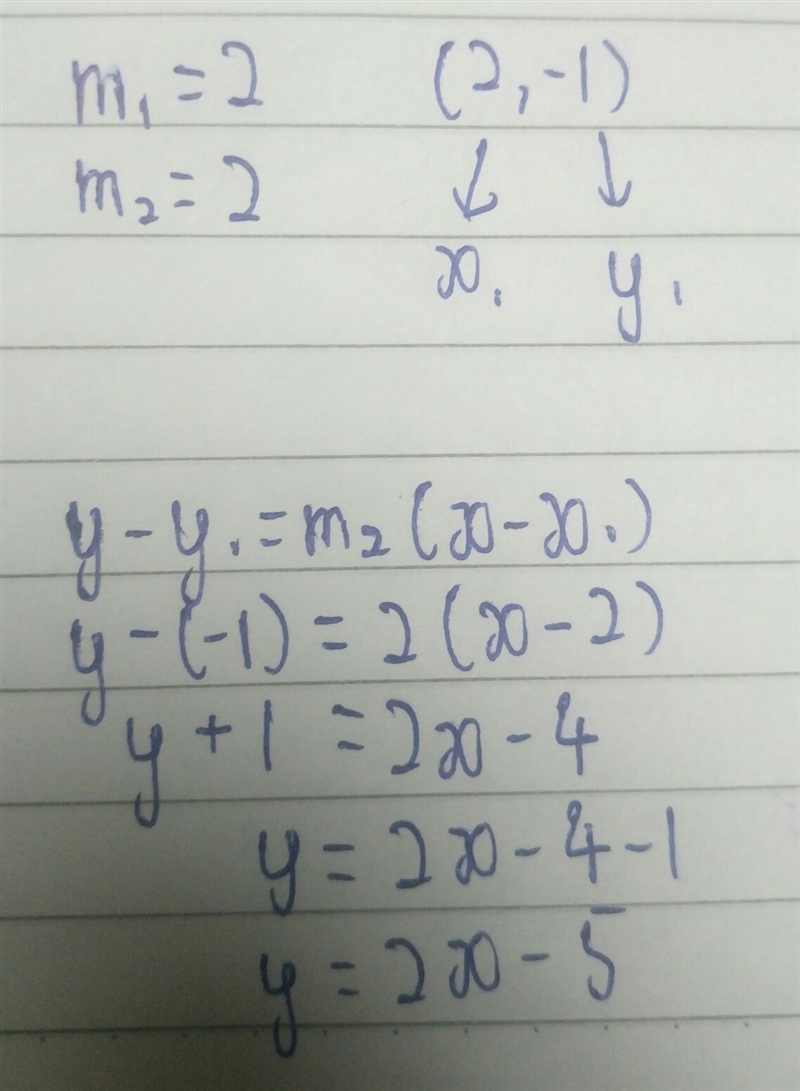 m₁ = 2 (2, -1)
m₂ = 2 ↓ ↓
x₁ y₁
y - y₁ = m₂ (x - x₁)
y - (-1) = 2 (x - 2)
y + 1 = 2x - 4
y = 2x - 4 - 1
y = 2x - 5